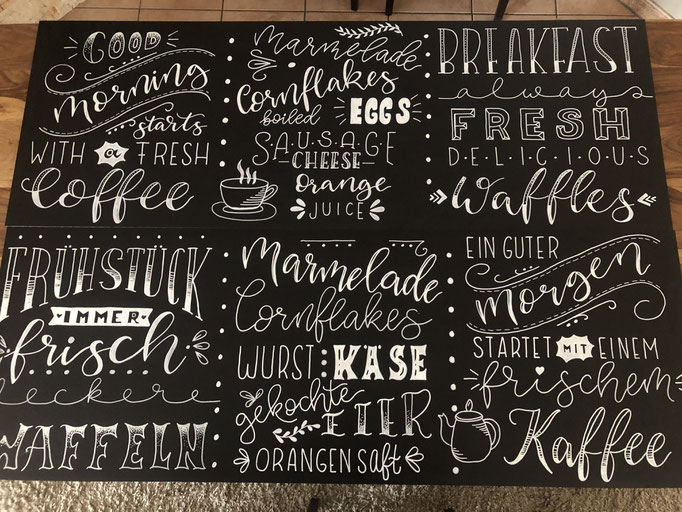 GOOD
morning
starts
WITH a FRESH
Coffee
Marmelade
Cornflakes
boiled EGGS
SAUSAGE
CHEESE
Orange
JUICE
BREAKFAST
always
FRESH
D·E·L·I·C·I·O·U·S
Waffles
FRÜHSTÜCK
IMMER
frisch
eckere
WAFFELN
Marmelade
Cornflakes
WURST : KÄSE
gekochte
EIER
ORANGENSaft
EIN GUTER
Morgen
STARTET MIT EINEM
frischem
Kaffee